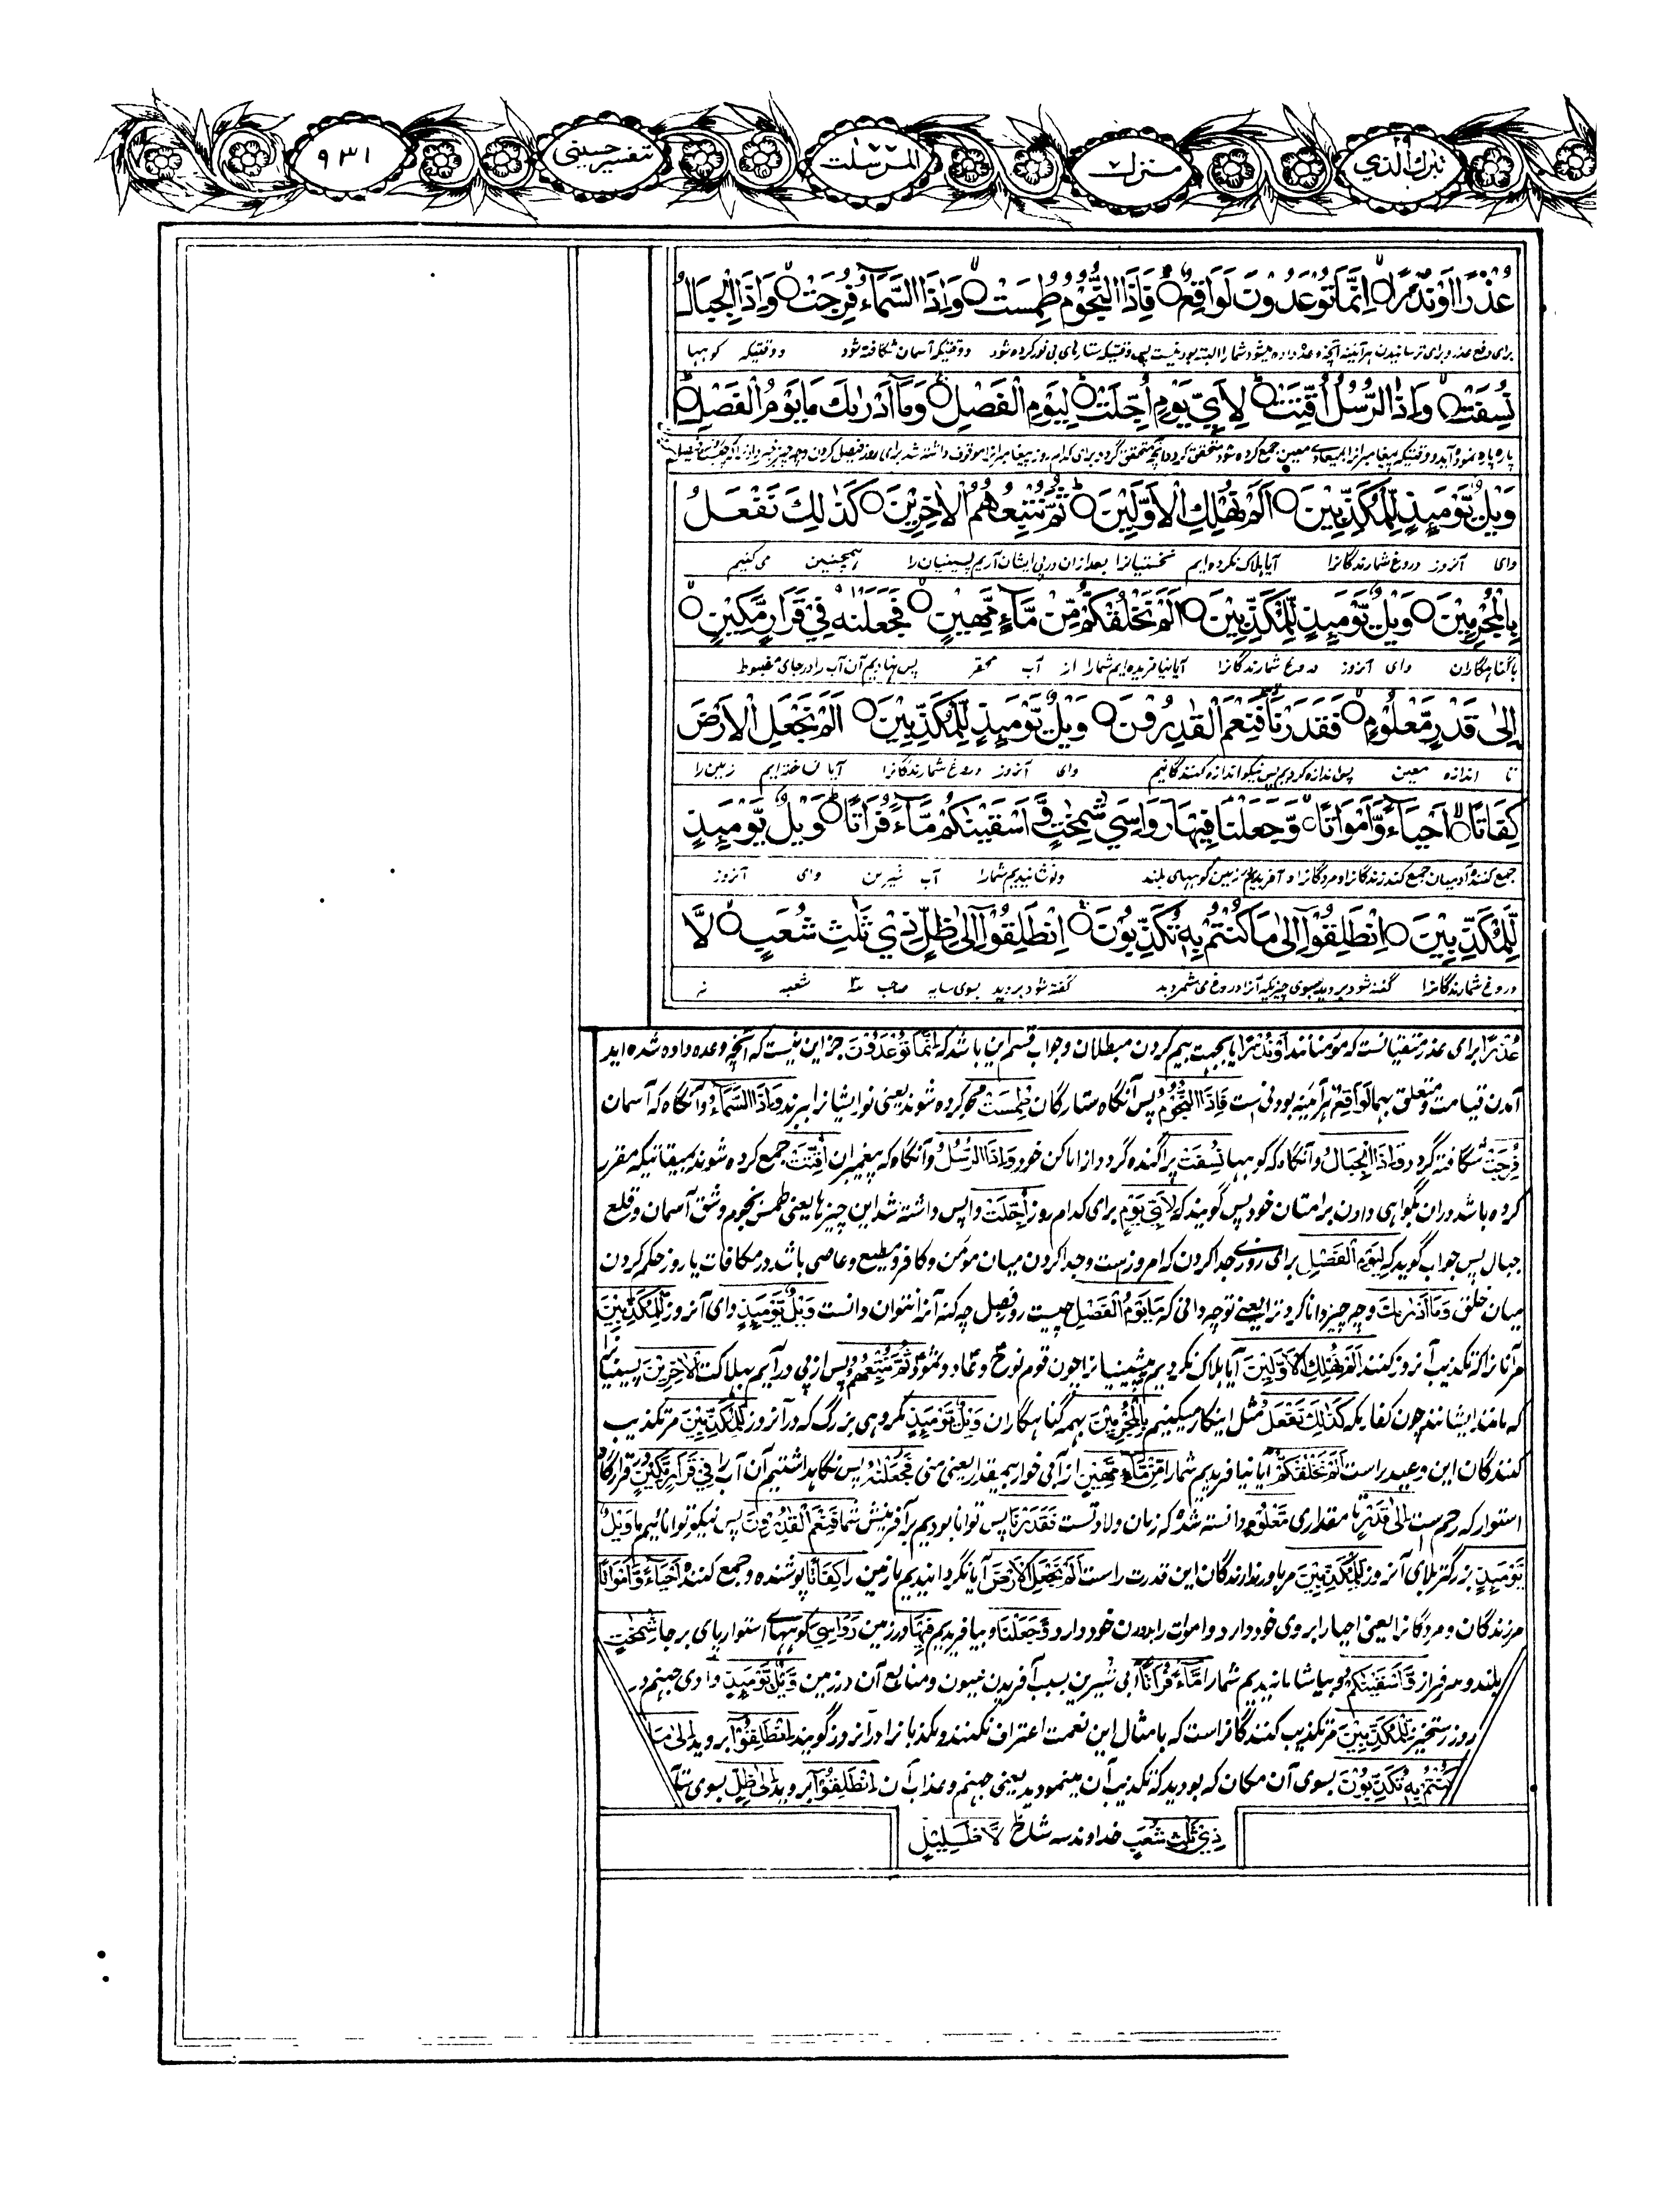 تبرك الذي ٢٩
منزل ٧
المرسلت ٧٧
تفسیر حسینی
٩٣١
عُذْرًا اَوْ نُذْرًا اِنَّمَا تُوْعَدُوْنَ لَوَاقِعٌ فَاِذَا النُّجُوْمُ طُمِسَتْ وَاِذَا السَّمَآءُ فُرِجَتْ وَاِذَا الْجِبَالُ
برای دفع عذر و برای ترسانیدن هرآئینه آنچه وعده داده میشود شمارا البته بودنیست پس وقتیکه ستارهای بی نور کرده شود و وقتیکه آسمان شگافته شود و وقتیکه کوهها
نُسِفَتْ وَاِذَا الرُّسُلُ اُقِّتَتْ لِاَيِّ يَوْمٍ اُجِّلَتْ لِيَوْمِ الْفَصْلِ وَمَآ اَدْرٰىكَ مَا يَوْمُ الْفَصْلِ
پاره پاره نموده آید و وقتیکه پیغامبرانرا بمیعادے معین جمع کرده شود متحقق گردد آنچه متحقق گردد برای کدام روز پیغامبرانرا موقوف داشته شد برای روز فیصل کردن و چه چیز خبردار کرد ترا که چیست روز فیصله
وَيْلٌ يَّوْمَئِذٍ لِّلْمُكَذِّبِيْنَ اَلَمْ نُهْلِكِ الْاَوَّلِيْنَ ثُمَّ نُتْبِعُهُمُ الْاٰخِرِيْنَ كَذٰلِكَ نَفْعَلُ
وای آنروز دروغ شمارندگانرا آیا هلاک نکرده ایم نخستیانرا بعد ازان درپی ایشان آریم پسینیان را همچنین می کنیم
بِالْمُجْرِمِيْنَ وَيْلٌ يَّوْمَئِذٍ لِّلْمُكَذِّبِيْنَ اَلَمْ نَخْلُقْكُّمْ مِّنْ مَّآءٍ مَّهِيْنٍ فَجَعَلْنٰهُ فِيْ قَرَارٍ مَّكِيْنٍ
با گناهگاران وای آنروز دروغ شمارندگانرا آیا نیافریده ایم شمارا از آب محقر پس نهادیم آن آب را در جای مضبوط
اِلٰى قَدَرٍ مَّعْلُوْمٍ فَقَدَرْنَا فَنِعْمَ الْقٰدِرُوْنَ وَيْلٌ يَّوْمَئِذٍ لِّلْمُكَذِّبِيْنَ اَلَمْ نَجْعَلِ الْاَرْضَ
تا اندازه معین پس اندازه کردیم پس نیکو اندازه کنندگانیم وای آنروز دروغ شمارندگانرا آیا نساخته ایم زمین را
كِفَاتًا اَحْيَآءً وَّاَمْوَاتًا وَّجَعَلْنَا فِيْهَا رَوَاسِيَ شٰمِخٰتٍ وَّاَسْقَيْنٰكُمْ مَّآءً فُرَاتًا وَيْلٌ يَّوْمَئِذٍ
جمع کننده آدمیان جمع کند زندگانرا و مردگانرا و آفریدیم در زمین کوههای بلند و نوشانیدیم شمارا آب شیرین وای آنروز
لِّلْمُكَذِّبِيْنَ اِنْطَلِقُوْٓا اِلٰى مَا كُنْتُمْ بِهٖ تُكَذِّبُوْنَ اِنْطَلِقُوْٓا اِلٰى ظِلٍّ ذِيْ ثَلٰثِ شُعَبٍ لَّا
دروغ شمارندگانرا گفته شود بروید بسوی چیزیکه آنرا دروغ می شمردید گفته شود بروید بسوی سایه صاحب سه شعبه نه
عُذْرًا برای عذر متقیانست که مؤمنانند اَوْ نُذْرًا یا بجهت بیم کردن مبطلان و جواب قسم این باشد که اِنَّمَا تُوْعَدُوْنَ جز این نیست که آنچه وعده داده شده اید
آمدن قیامت و متعلق بهما لَوَاقِعٌ هرآئینه بودنی است فَاِذَا النُّجُوْمُ پس آنگاه ستارگان طُمِسَتْ محو کرده شوند یعنی نور ایشانرا ببرند وَاِذَا السَّمَآءُ و آنگاه که آسمان
فُرِجَتْ شگافته گردد وَاِذَا الْجِبَالُ و آنگاه که کوهها نُسِفَتْ پراگنده گردد از اماکن خود وَاِذَا الرُّسُلُ و آنگاه که پیغمبران اُقِّتَتْ جمع کرده شوند بمیقاتیکه مقرر
کرده باشد دران بگواهی دادن بر امتان خود پس گویند که لِاَيِّ يَوْمٍ برای کدام روز اُجِّلَتْ واپس داشته شد این چیزها یعنی طمس نجوم و شق آسمان و قلع
جبال پس جواب گوید که لِيَوْمِ الْفَصْلِ برای روزے جدا کردن که امروزست و جدا کردن میان مؤمن و کافر و مطیع و عاصی باشد در مکافات یا روز حکم کردن
میان خلق وَمَآ اَدْرٰىكَ و چه چیز دانا کرد ترا یعنے تو چه دانی که مَا يَوْمُ الْفَصْلِ چیست روز فصل چه کنه آنرا نتوان دانست وَيْلٌ يَّوْمَئِذٍ وای آنروز لِّلْمُكَذِّبِيْنَ
مر آنانرا که تکذیب آنروز کنند اَلَمْ نُهْلِكِ الْاَوَّلِيْنَ آیا هلاک نکردیم پیشینیانرا چون قوم نوح و عاد و ثمود ثُمَّ نُتْبِعُهُمُ پس از پی در آریم بهلاکت الْاٰخِرِيْنَ پسینیانرا
که مانند ایشانند چون کفار مکه كَذٰلِكَ نَفْعَلُ مثل اینکار میکنیم بِالْمُجْرِمِيْنَ بهمه گناهگاران وَيْلٌ يَّوْمَئِذٍ مکروهی بزرگ که در آنروز لِّلْمُكَذِّبِيْنَ مر تکذیب
کنندگان این وعید راست اَلَمْ نَخْلُقْكُّمْ آیا نیافریدیم شمارا مِّنْ مَّآءٍ مَّهِيْنٍ از آبی خوار بیمقدار یعنی منی فَجَعَلْنٰهُ پس نگاهداشتیم آن آب را فِيْ قَرَارٍ مَّكِيْنٍ در قرارگاه
استوار که رحم ست اِلٰى قَدَرٍ تا مقداری مَّعْلُوْمٍ دانسته شده که زمان ولادتست فَقَدَرْنَا پس توانا بودیم بر آفرینش شما فَنِعْمَ الْقٰدِرُوْنَ پس نیکو توانائیم ما وَيْلٌ
يَّوْمَئِذٍ بزرگتر بلای آنروز لِّلْمُكَذِّبِيْنَ مر باور ندارندگان این قدرت راست اَلَمْ نَجْعَلِ الْاَرْضَ آیا نگردانیدیم ما زمین را كِفَاتًا پوشنده و جمع کننده اَحْيَآءً وَّاَمْوَاتًا
مر زندگان و مردگانرا یعنی احیارا بر روی خود دارد و اموات را بدرون خود دارد وَّجَعَلْنَا و بیافریدیم فِيْهَا در زمین رَوَاسِيَ کوههاے استوار پای برجا شٰمِخٰتٍ
بلند و سرفراز وَّاَسْقَيْنٰكُمْ و بیاشامانیدیم شمارا مَّآءً فُرَاتًا آبی شیرین بسبب آفریدن عیون و منابع آن در زمین وَيْلٌ يَّوْمَئِذٍ وادی جهنم در
روز رستخیز لِّلْمُكَذِّبِيْنَ مر تکذیب کنندگانراست که بامثال این نعمت اعتراف نکنند و مکذبانرا در آنروز گویند اِنْطَلِقُوْٓا بروید اِلٰى مَا
كُنْتُمْ بِهٖ تُكَذِّبُوْنَ بسوی آن مکان که بودید که تکذیب آن مینمودید یعنی جهنم و عذاب آن اِنْطَلِقُوْٓا بروید اِلٰى ظِلٍّ بسوی
ذِيْ ثَلٰثِ شُعَبٍ خداوند سه شاخ لَّا ظَلِيْلٍ